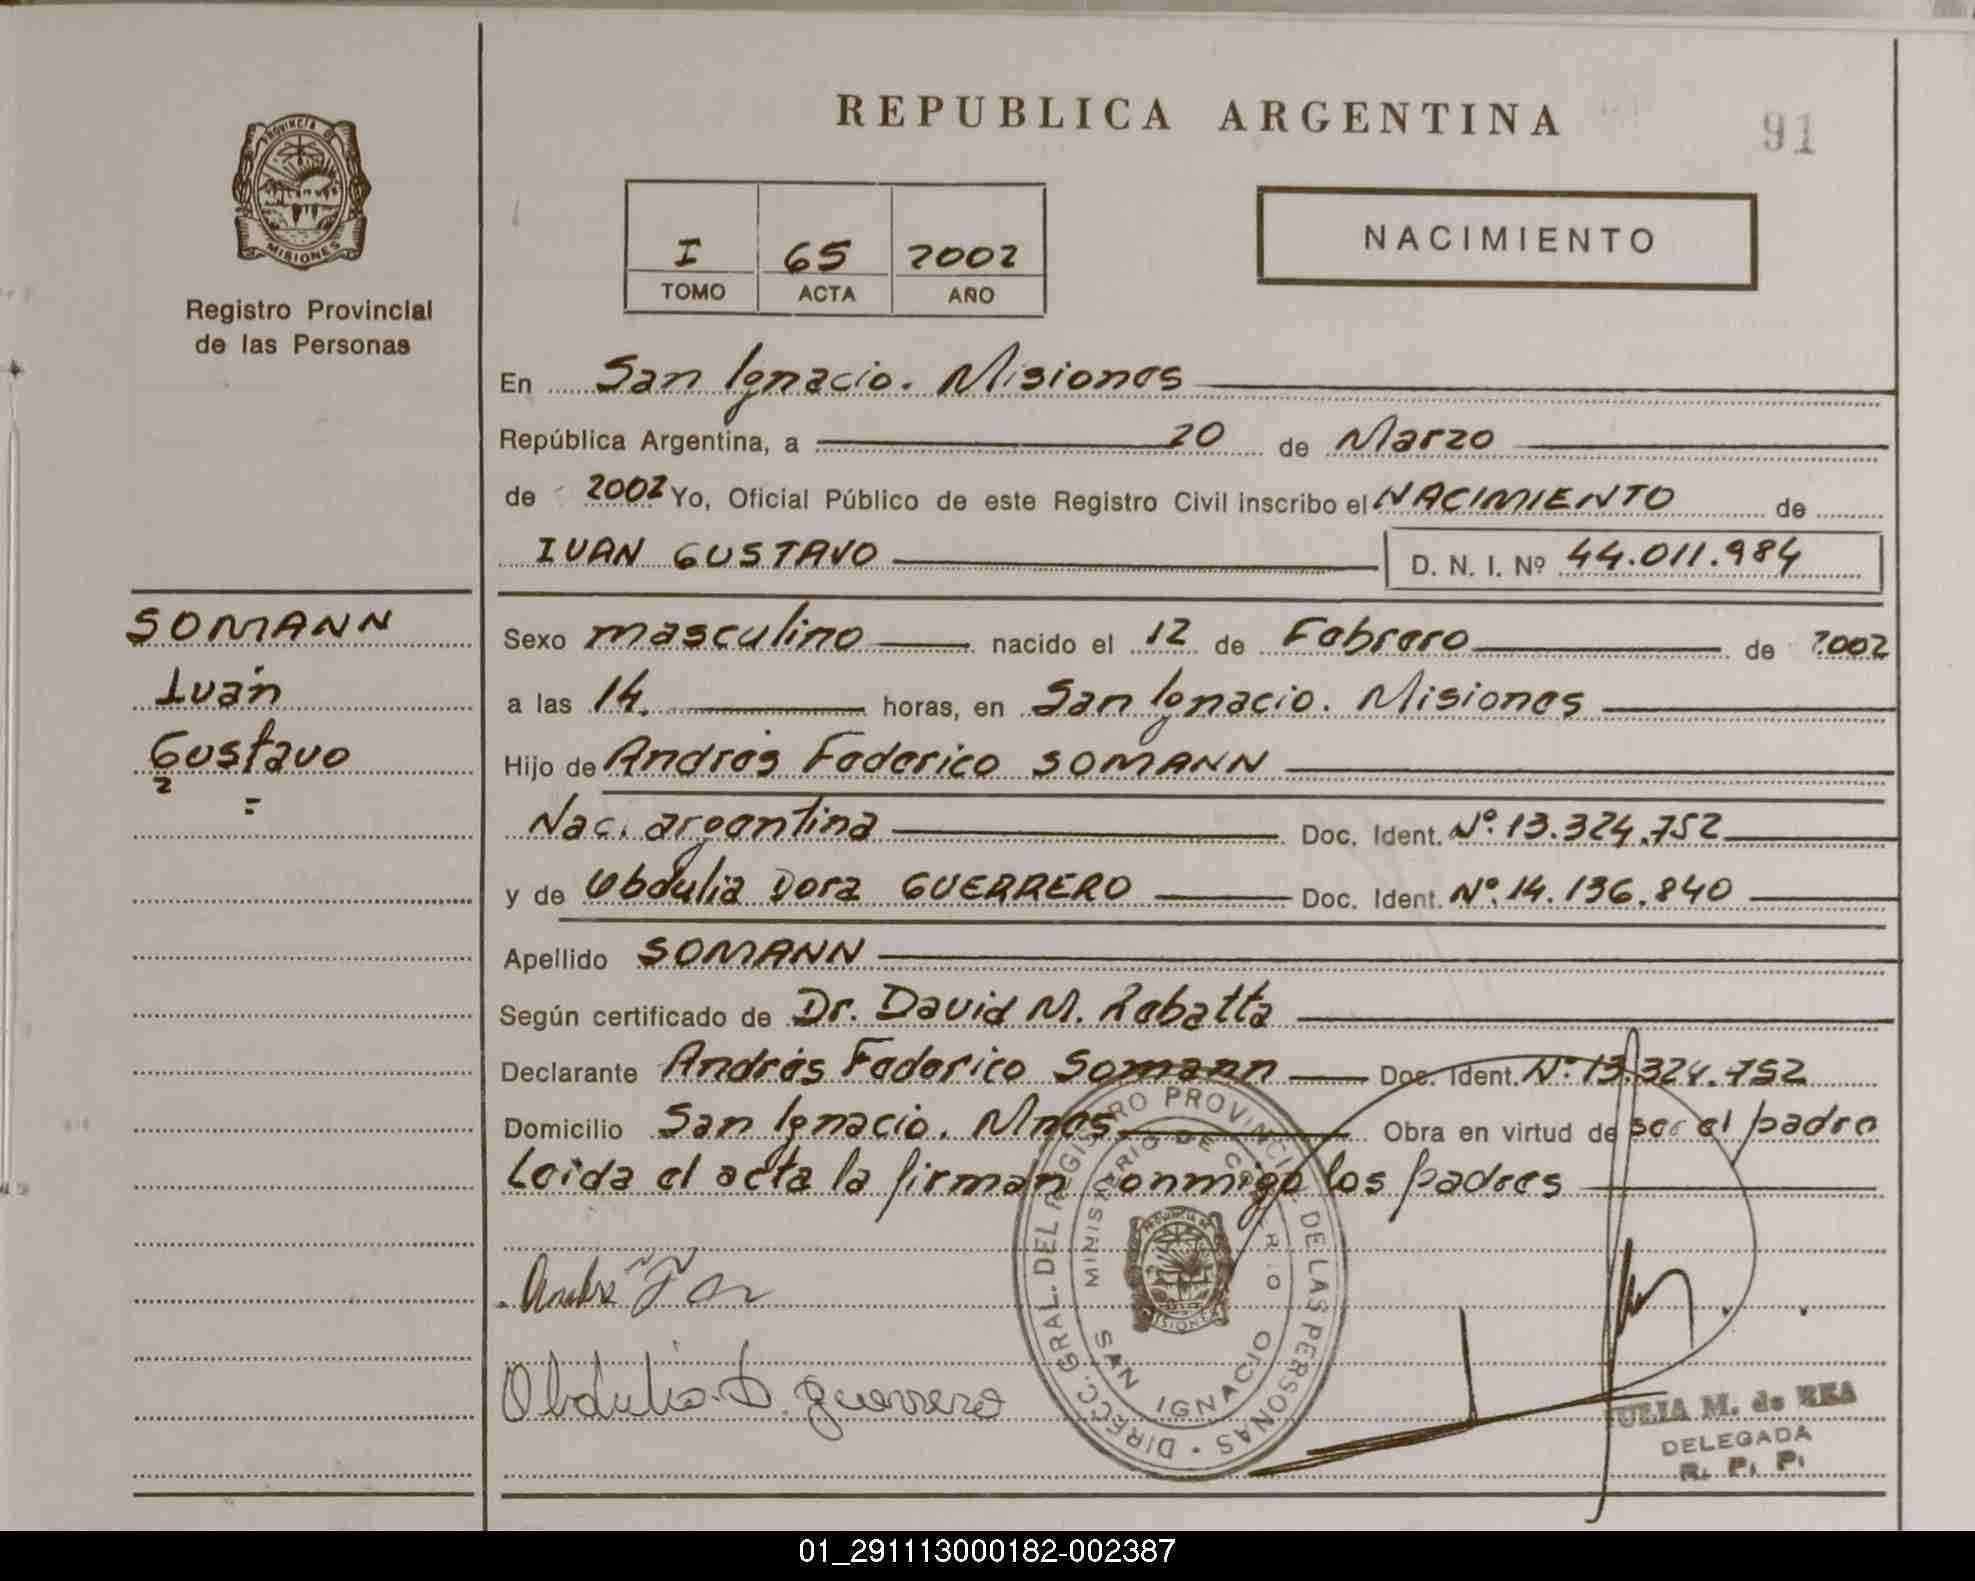 REPUBLICA ARGENTINA
91
PROVINCIA DE
MISIONES
Registro Provincial
de las Personas
I 65 2002
TOMO ACTA AÑO
NACIMIENTO
En San Ignacio. Misiones
República Argentina, a 20 de Marzo
de 2002 Yo, Oficial Público de este Registro Civil inscribo el NACIMIENTO de
IVAN GUSTAVO D. N. I. Nº 44.011.984
SOMANN
Ivan
Gustavo
Sexo masculino nacido el 12 de Febrero de 2002
a las 14. horas, en San Ignacio. Misiones
Hijo de Andrés Federico SOMANN
Nac. argentina Doc. Ident. Nº. 13.324.752
y de Obdulia Dora GUERRERO Doc. Ident. Nº. 14.136.840
Apellido SOMANN
Según certificado de Dr. David M. Rabatta
Declarante Andrés Federico Somann Doc. Ident. Nº 13.324.752
Domicilio San Ignacio. Mnes. Obra en virtud de ser el padre
Leida el acta la firman conmigo los padres
DIRECC. GRAL. DEL REGISTRO PROVINCIAL DE LAS PERSONAS
MINISTERIO DE
SAN IGNACIO
Obdulia D. guerrero
JULIA M. de REA
DELEGADA
R. P. P.
01_291113000182-002387